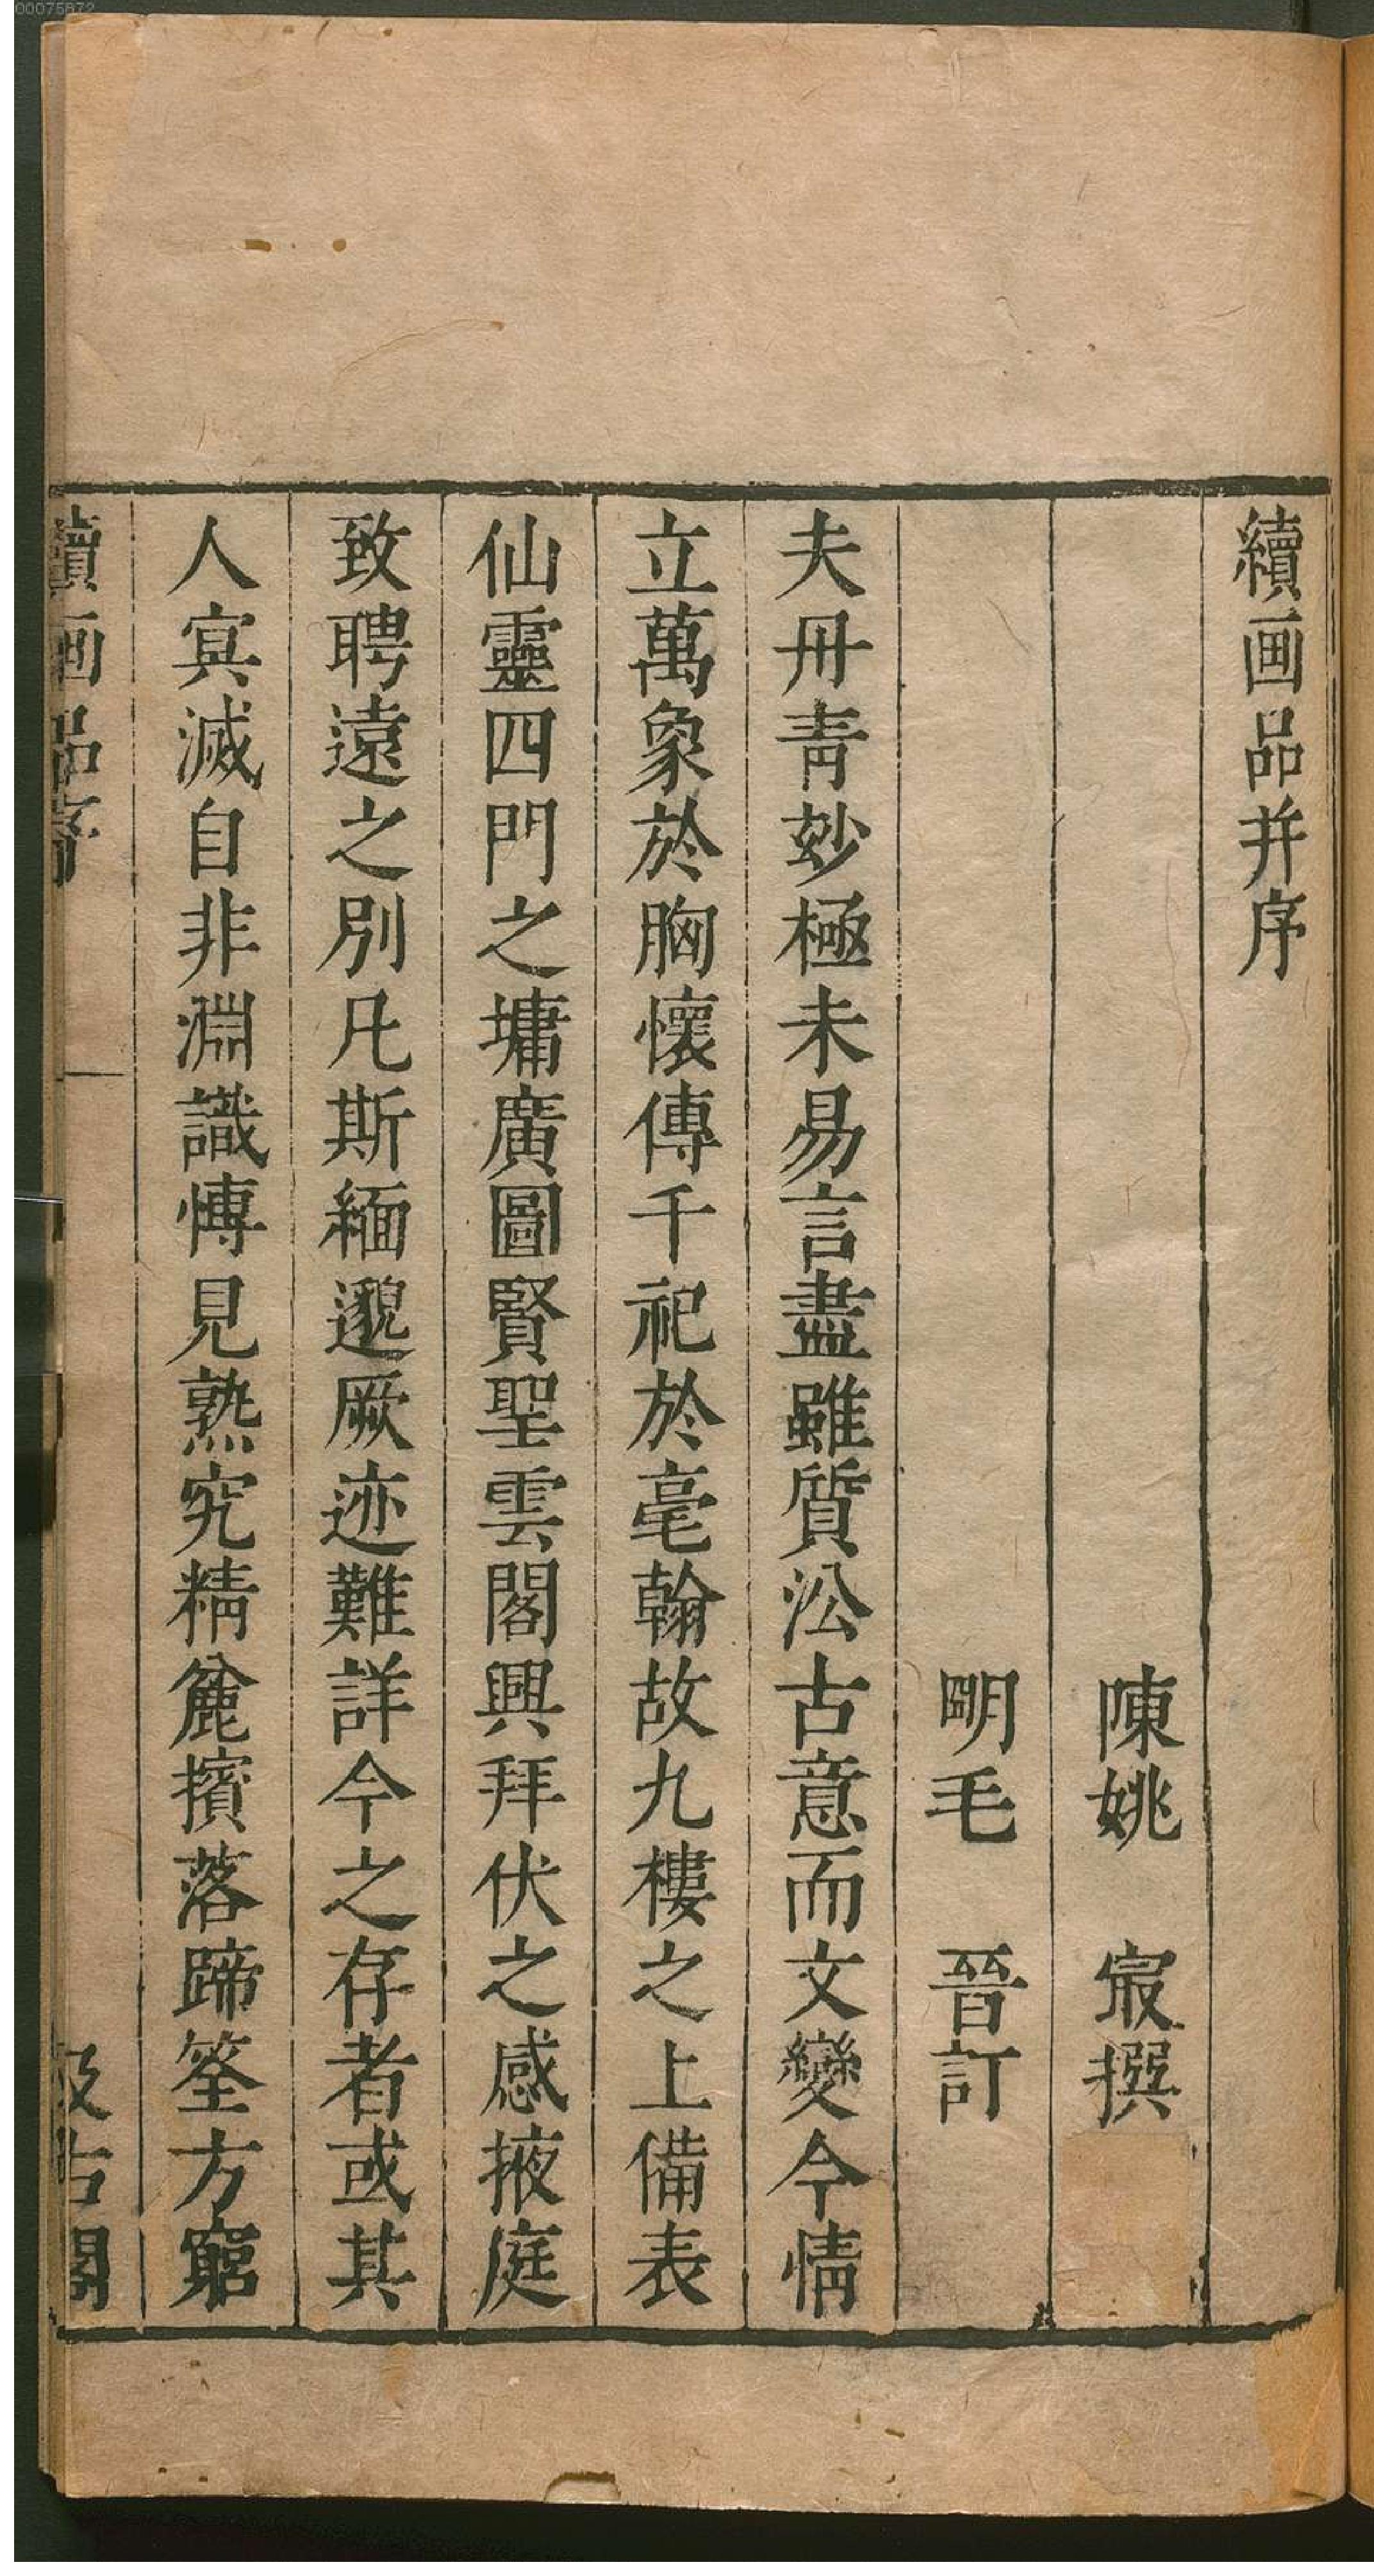 00075872
續画品并序
陳姚　㝡撰
明毛　晉訂
夫丹青妙極未易言盡雖質㳂古意而文變今情
立萬象於胸懷傳千祀於毫翰故九樓之上備表
仙靈四門之墉廣圖賢聖雲閣興拜伏之感掖庭
致聘遠之別凡斯緬邈厥迹難詳今之存者或其
人㝠滅自非淵識愽見熟究精麄擯落蹄筌方窮
續画品序
一
汲古閣